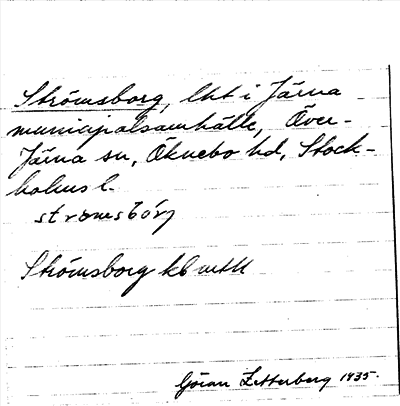 Strömsborg, lht i Järna
municipalsamhälle, Över-
Järna sn, Öknebo hd, Stock-
holms l.
strömsbörj
Strömsborg kb mtll
Göran Zetterberg 1935.